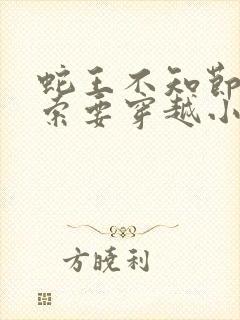 蛇王不知节
索要穿越小
方晓利